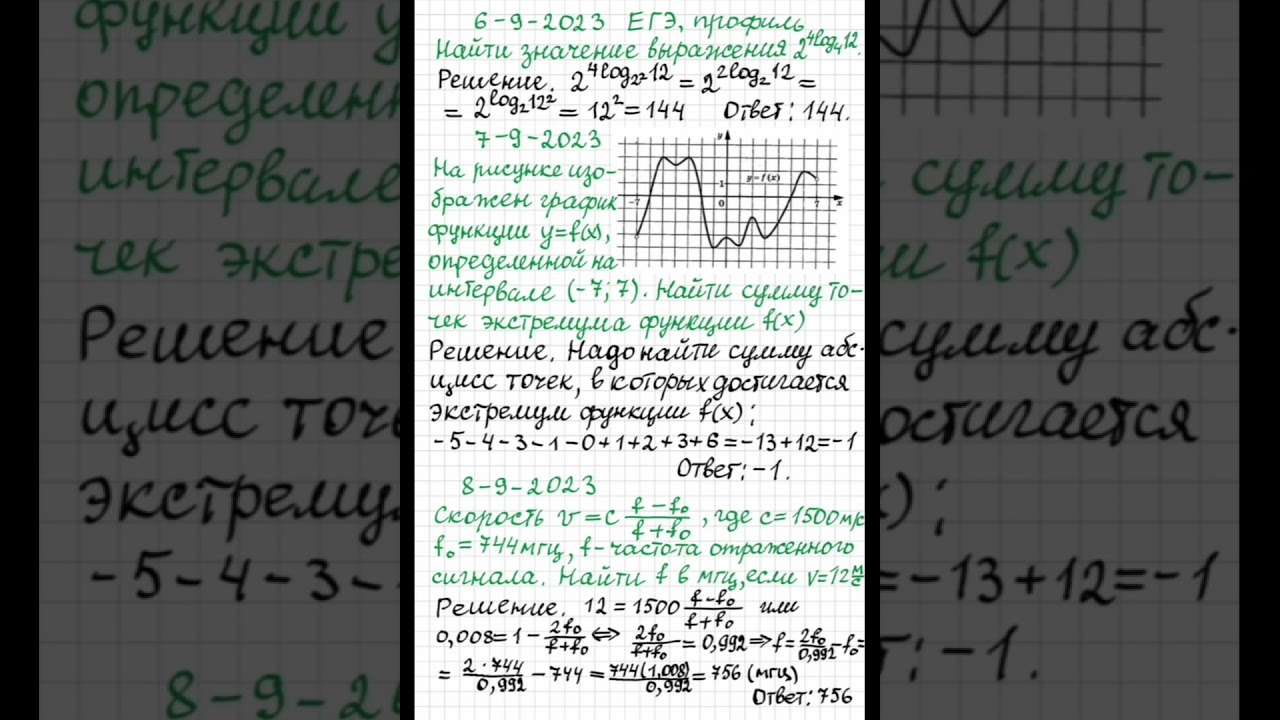 6-9-2023 ЕГЭ, профиль
Найти значение выражения 2^{4log₄12}.
Решение. 2^{4log_{2²}12} = 2^{2log₂12} =
= 2^{log₂12²} = 12² = 144 Ответ: 144.
7-9-2023
На рисунке изо-
бражен график
функции y=f(x),
определенной на
интервале (-7; 7). Найти сумму то-
чек экстремума функции f(x)
y
1
y=f(x)
-7 0 7 x
Решение. Надо найти сумму абс-
цисс точек, в которых достигается
экстремум функции f(x):
-5-4-3-1-0+1+2+3+6=-13+12=-1
Ответ: -1.
8-9-2023
Скорость v = c (f-f₀)/(f+f₀), где c=1500м/с
f₀=744мгц, f-частота отраженного
сигнала. Найти f в мгц, если v=12 м/с
Решение. 12 = 1500 (f-f₀)/(f+f₀) или
0,008=1- 2f₀/(f+f₀) ⇔ 2f₀/(f+f₀) = 0,992 ⇒ f= 2f₀/0,992 -f₀=
= 2·744/0,992 - 744 = 744(1,008)/0,992 = 756 (мгц)
Ответ: 756